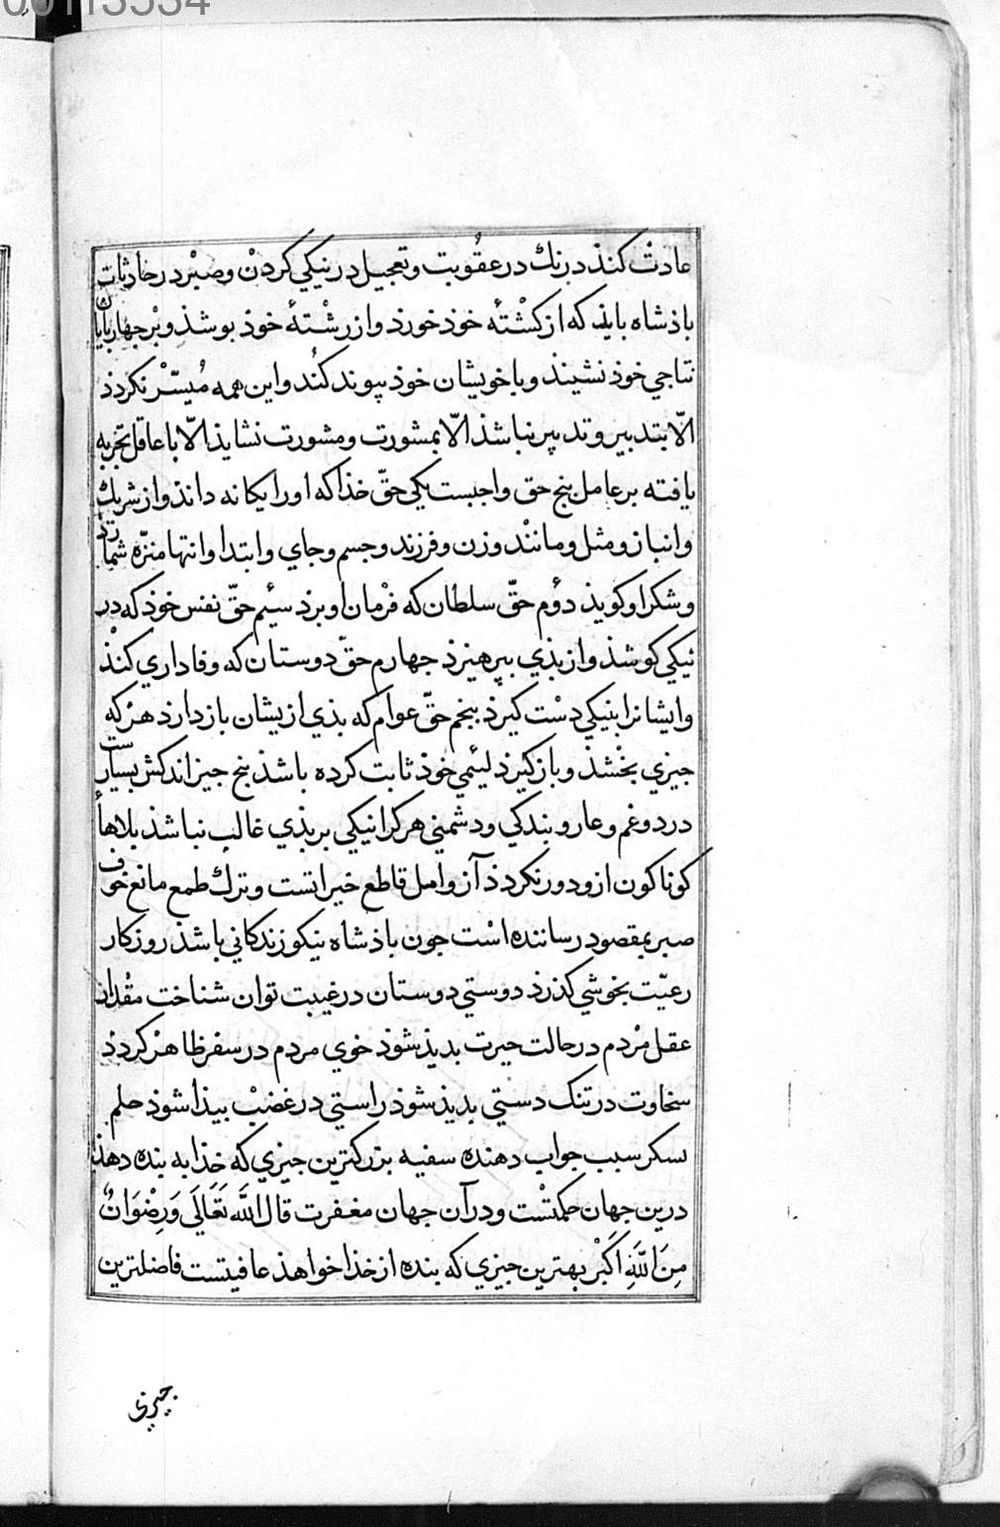 00113534
عادت كند درنك در عقوبت وتعجيل در نيكي كردن وصبر در حادثات
باذشاه بايذ كه از كشتهٔ خوذ خورذ واز رشتهٔ خوذ بوشذ وبر جهارپايان
نتاجي خوذ نشيند وبا خويشان خوذ پيوند كند واين همه ميسّر نكردذ
الّا بتدبير وتدبير نباشذ الّا بمشورت ومشورت نشايذ الّا با عاقل تجربه
يافته بر عامل بنج حق واجبست يكي حقّ خذا كه اورا يكانه دانذ واز شريك
وانباز ومثل ومانند وزن وفرزند وجسم وجاي وابتدا وانتها منزّه شمارذ
وشكر او كويذ دوم حقّ سلطان كه فرمان او برذ سيم حقّ نفس خوذ كه در
نيكي كوشذ واز بذي بپرهيزذ جهارم حقّ دوستان كه وفاداري كند
وايشانرا بنيكي دست كيرذ بنجم حقّ عوام كه بذي ازيشان بازدارذ هركه
جيزي بخشذ وباز كيرذ لئيمي خوذ ثابت كرده باشذ بنج جيز اندكش بسيارست
درد وغم وعار وبندكي ودشمني هركرا نيكي بر بذي غالب نباشذ بلاهاء
كوناكون ازو دور نكردذ آز وامل قاطع خيراتست وترك طمع مانع خوف
صبر بمقصود رساننده است جون باذشاه نيكو زندكاني باشذ روزكار
رعيّت بخوشي كذرذ دوستي دوستان در غيبت توان شناخت مقدار
عقل مردم در حالت حيرت بديذ شوذ خوي مردم در سفر ظاهر كردذ
سخاوت در تنك دستي بديذ شوذ راستي در غضب بيذا شوذ حلم
سبب جواب دهنده سفيه بزركترين جيزي كه خذا به بنده دهذ
درين جهان حكمتست ودر آن جهان مغفرت قال اللّه تَعَالَى وَرِضْوَانٌ
مِنَ اللَّهِ اَكْبَرُ بهترين جيزي كه بنده از خذا خواهذ عافيتست فاضلترين
جيزي